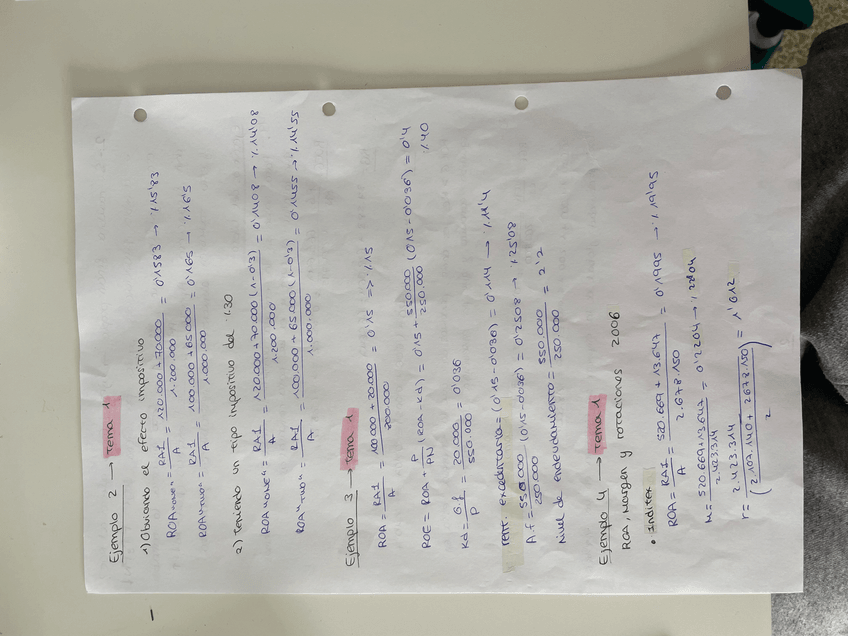 Ejemplo 2 → Tema 1
1) Obviando el efecto impositivo
ROA"ONE" = RA1/A = 120.000+70.000/1.200.000 = 0'1583 → %15'83
ROA"TWO" = RA1/A = 100.000+65.000/1.000.000 = 0'165 → %16'5
2) Teniendo un tipo impositivo del %30
ROA"ONE" = RA1/A = 120.000+70.000(1-0'3)/1.200.000 = 0'1408 → %14'08
ROA"TWO" = RA1/A = 100.000+65.000(1-0'3)/1.000.000 = 0'1455 → %14'55
Ejemplo 3 → Tema 1
ROA = RA1/A = 100.000+20.000/800.000 = 0'15 => %15
ROE = ROA + P/PN (ROA - Kd) = 0'15 + 550.000/250.000 (0'15 - 0'036) = 0'4
%40
Kd = G.f/P = 20.000/550.000 = 0'036
rent. excedentaria = (0'15-0'036) = 0'114 → %11'4
A.f = 550.000/250.000 (0'15-0'036) = 0'2508 → %25'08
Nivel de endeudamiento = 550.000/250.000 = 2'2
Ejemplo 4 → Tema 1
ROA, Margen y rotaciones 2006
• Inditex
ROA = RA1/A = 520.669+13.647/2.678.150 = 0'1995 → %19'95
M = 520.669+13.647/2.423.314 = 0'2204 → % 22'04
r = 2.423.314/(2.107.140+2.678.150/2) = 1'012